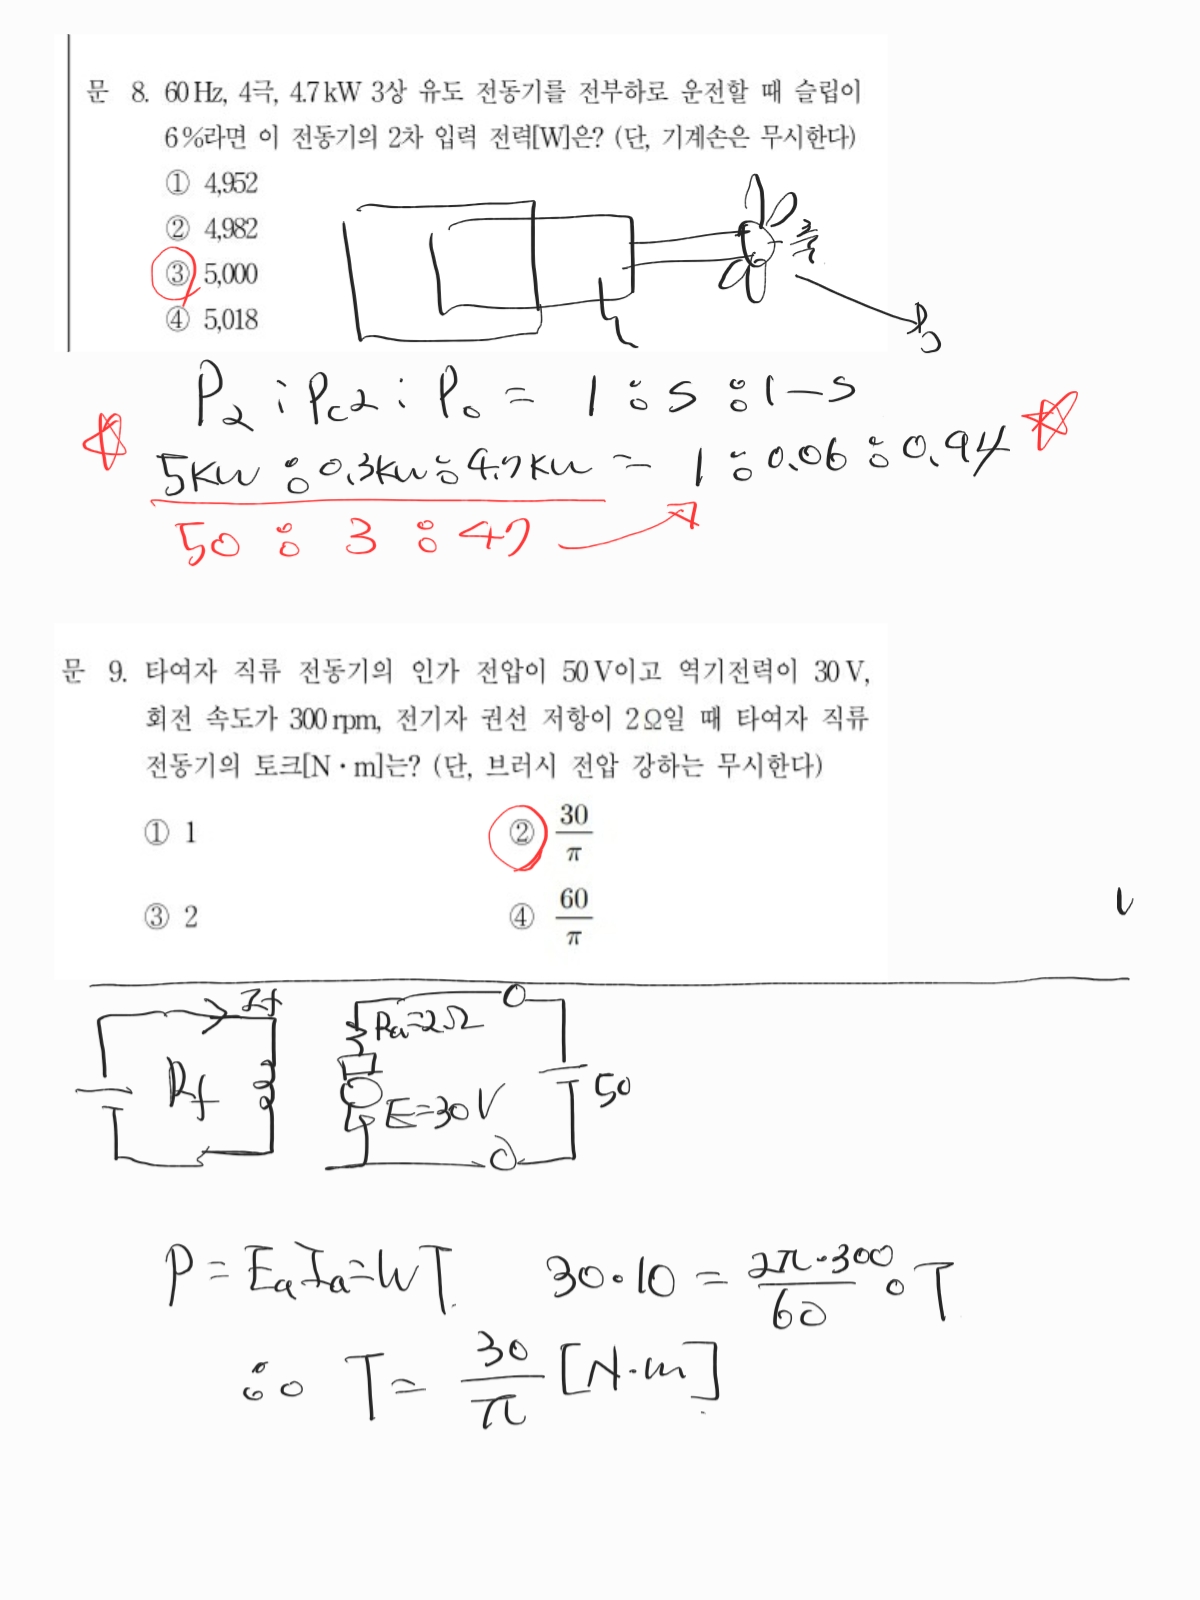 문 8. 60 Hz, 4극, 4.7 kW 3상 유도 전동기를 전부하로 운전할 때 슬립이
6 %라면 이 전동기의 2차 입력 전력[W]은? (단, 기계손은 무시한다)
① 4,952
② 4,982
③ 5,000
④ 5,018
P₀
P₂ : Pc2 : P₀ = 1 : s : 1-s
5KW : 0.3KW : 4.7KW = 1 : 0.06 : 0.94
50 : 3 : 47
문 9. 타여자 직류 전동기의 인가 전압이 50 V이고 역기전력이 30 V,
회전 속도가 300 rpm, 전기자 권선 저항이 2 Ω일 때 타여자 직류
전동기의 토크[N · m]는? (단, 브러시 전압 강하는 무시한다)
① 1 ② 30/π
③ 2 ④ 60/π
If
Rf
Ra=2Ω
E=30V
50
P = EaIa = WT 30·10 = 2π·300/60 · T
∴ T = 30/π [N·m]